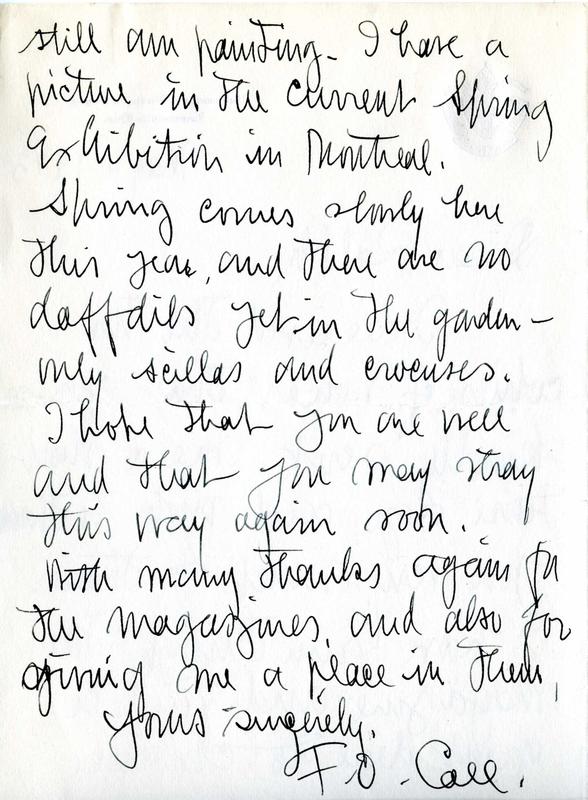 still am painting. I have a
picture in the current Spring
Exhibition in Montreal.
Spring comes slowly here
this year, and there are no
daffdils yet in the garden —
only scillas and crocuses.
I hope that you are well
and that you may stray
this way again soon.
With many thanks again for
the magazines, and also for
giving me a place in them,
Yours sincerely,
F. O. Call.